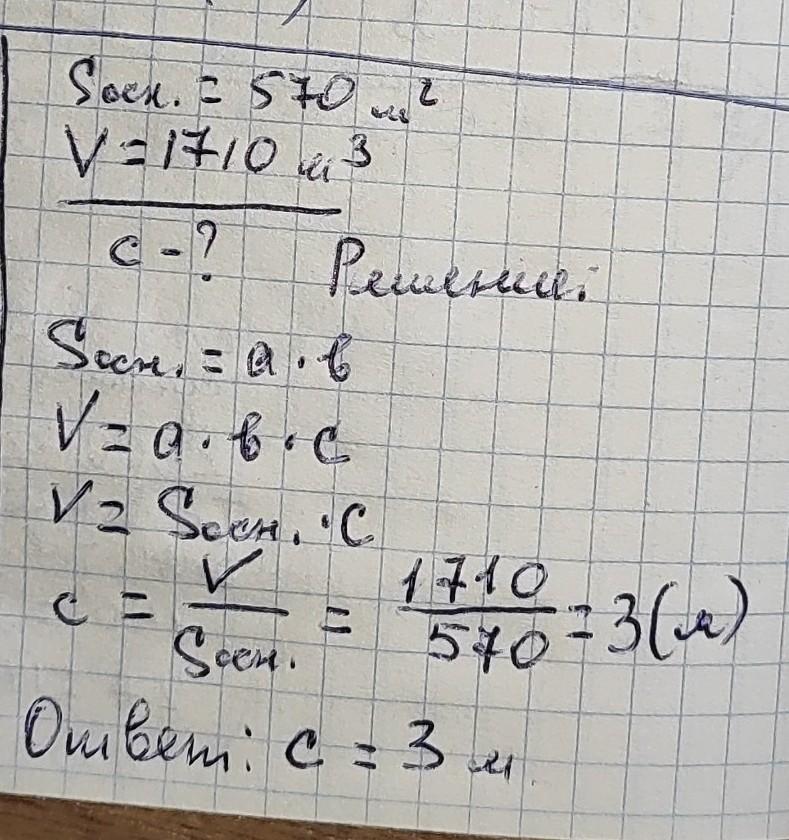 Sосн. = 570 м²
V = 1710 м³
с - ?
Решение:
Sосн. = а · в
V = а · в · с
V = Sосн. · с
с = V / Sосн. = 1710 / 570 = 3 (м)
Ответ: с = 3 м